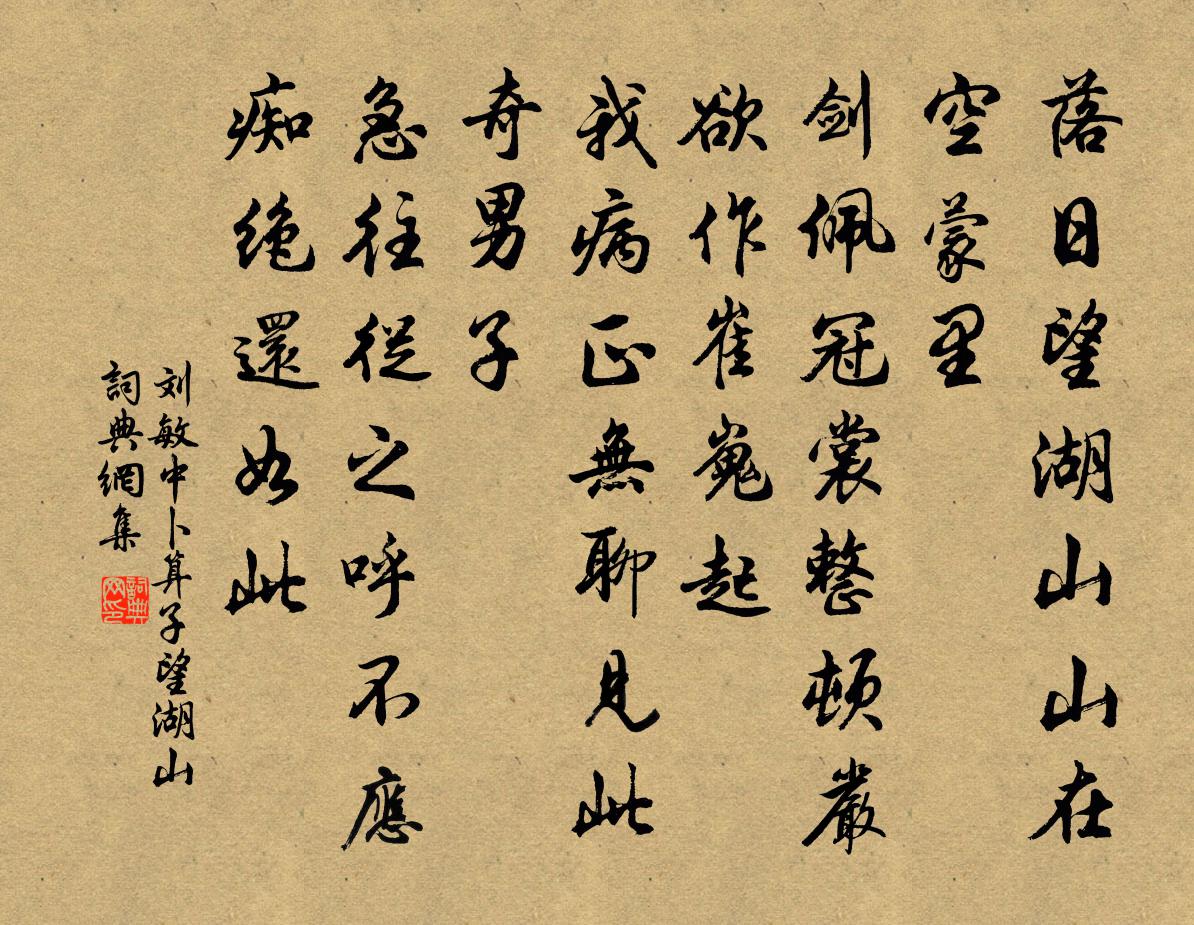 落日望湖山山在
空蒙里
剑佩冠裳整顿嚴
欲作崔嵬起
我病正無聊見此
奇男子
急往從之呼不應
痴绝還如此
刘敏中卜算子望湖山
詞典網集
詞典网印